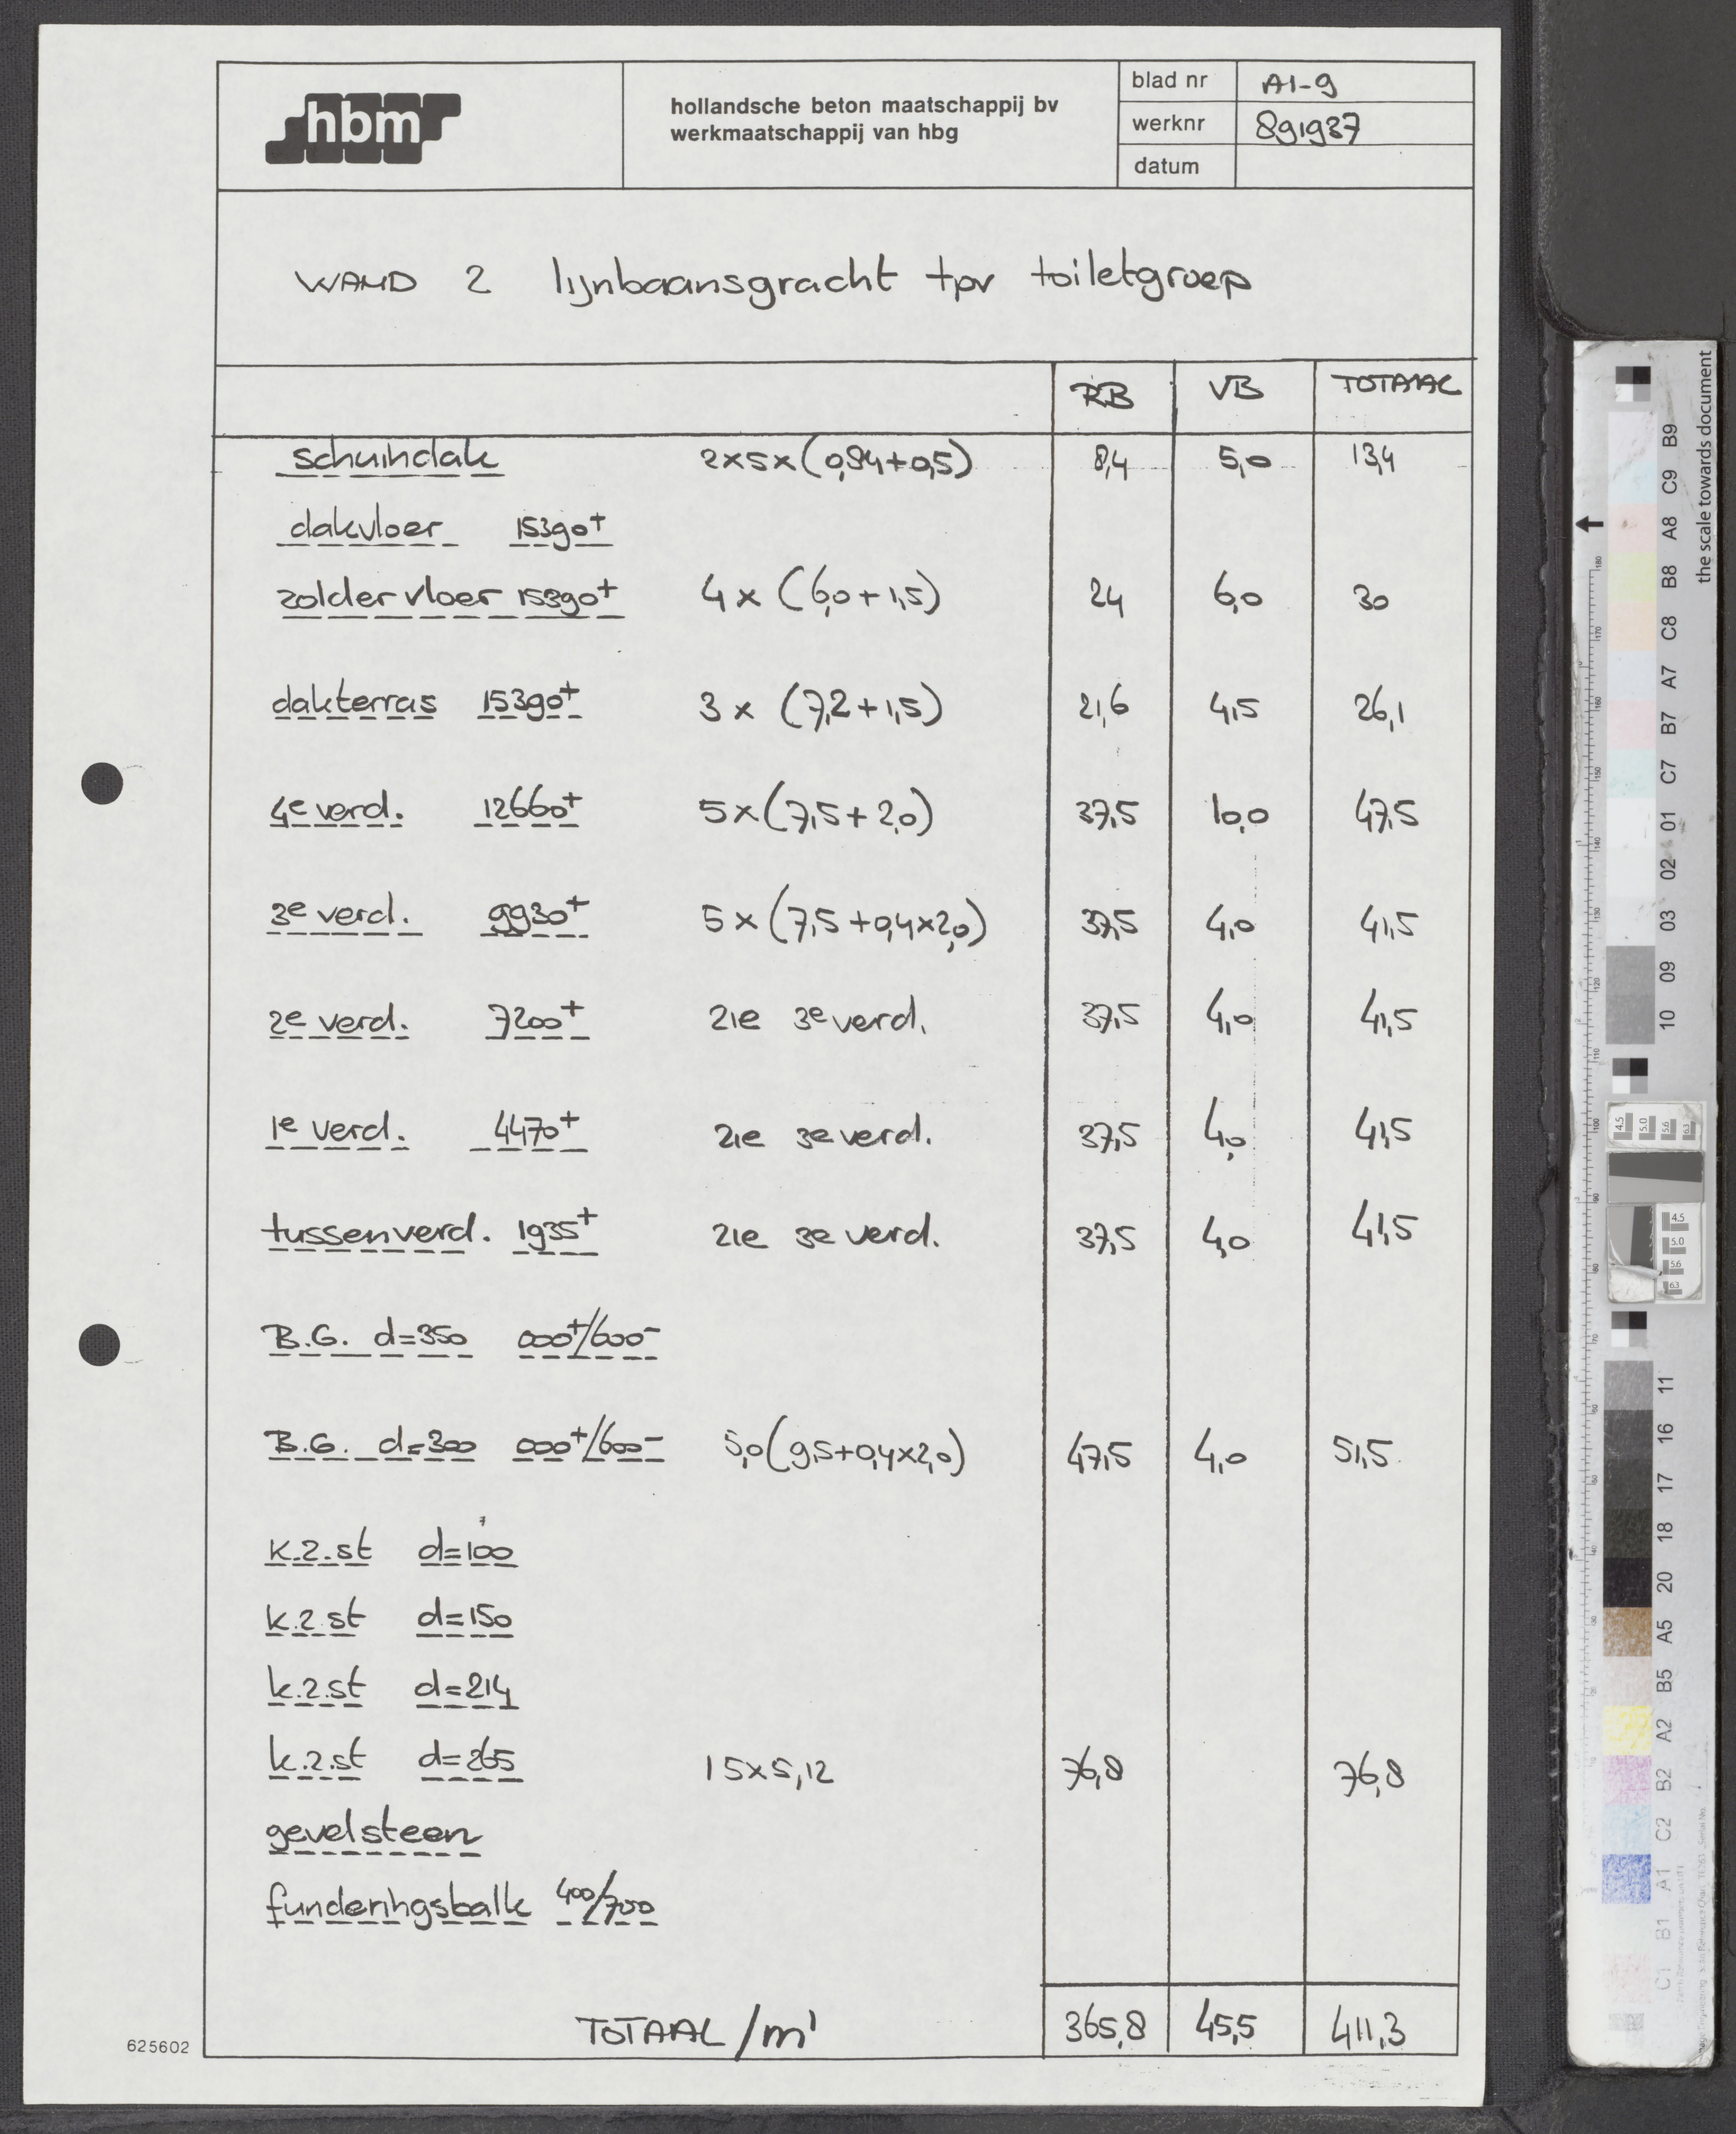 hbm
hollandsche beton maatschappij bv
werkmaatschappij van hbg
blad nr A1-9
werknr 891937
datum
WAND 2 lijnbaansgracht tpv toiletgroep
RB VB TOTAAL
schuindak 2x5x(0,84+0,5) 8,4 5,0 13,4
dakvloer 15390+
zoldervloer 15390+ 4x (6,0+1,5) 24 6,0 30
dakterras 15390+ 3x (7,2+1,5) 21,6 4,5 26,1
4e verd. 12660+ 5x(7,5+2,0) 37,5 10,0 47,5
3e verd. 9930+ 5x(7,5+0,4x2,0) 37,5 4,0 41,5
2e verd. 7200+ zie 3e verd. 37,5 4,0 41,5
1e verd. 4470+ zie 3e verd. 37,5 4,0 41,5
tussenverd. 1935+ zie 3e verd. 37,5 4,0 41,5
B.G. d=350 000+/600-
B.G. d=300 000+/600- 5,0(9,5+0,4x2,0) 47,5 4,0 51,5
k.z.st d=100
k.z.st d=150
k.z.st d=214
k.z.st d=265 15x5,12 76,8 76,8
gevelsteen
funderingsbalk 400/700
TOTAAL /m1 365,8 45,5 411,3
625602
the scale towards document
B9
C9
A8
B8
C8
A7
B7
C7
01
02
03
09
10
11
16
17
18
20
A5
B5
A2
B2
C2
A1
B1
C1